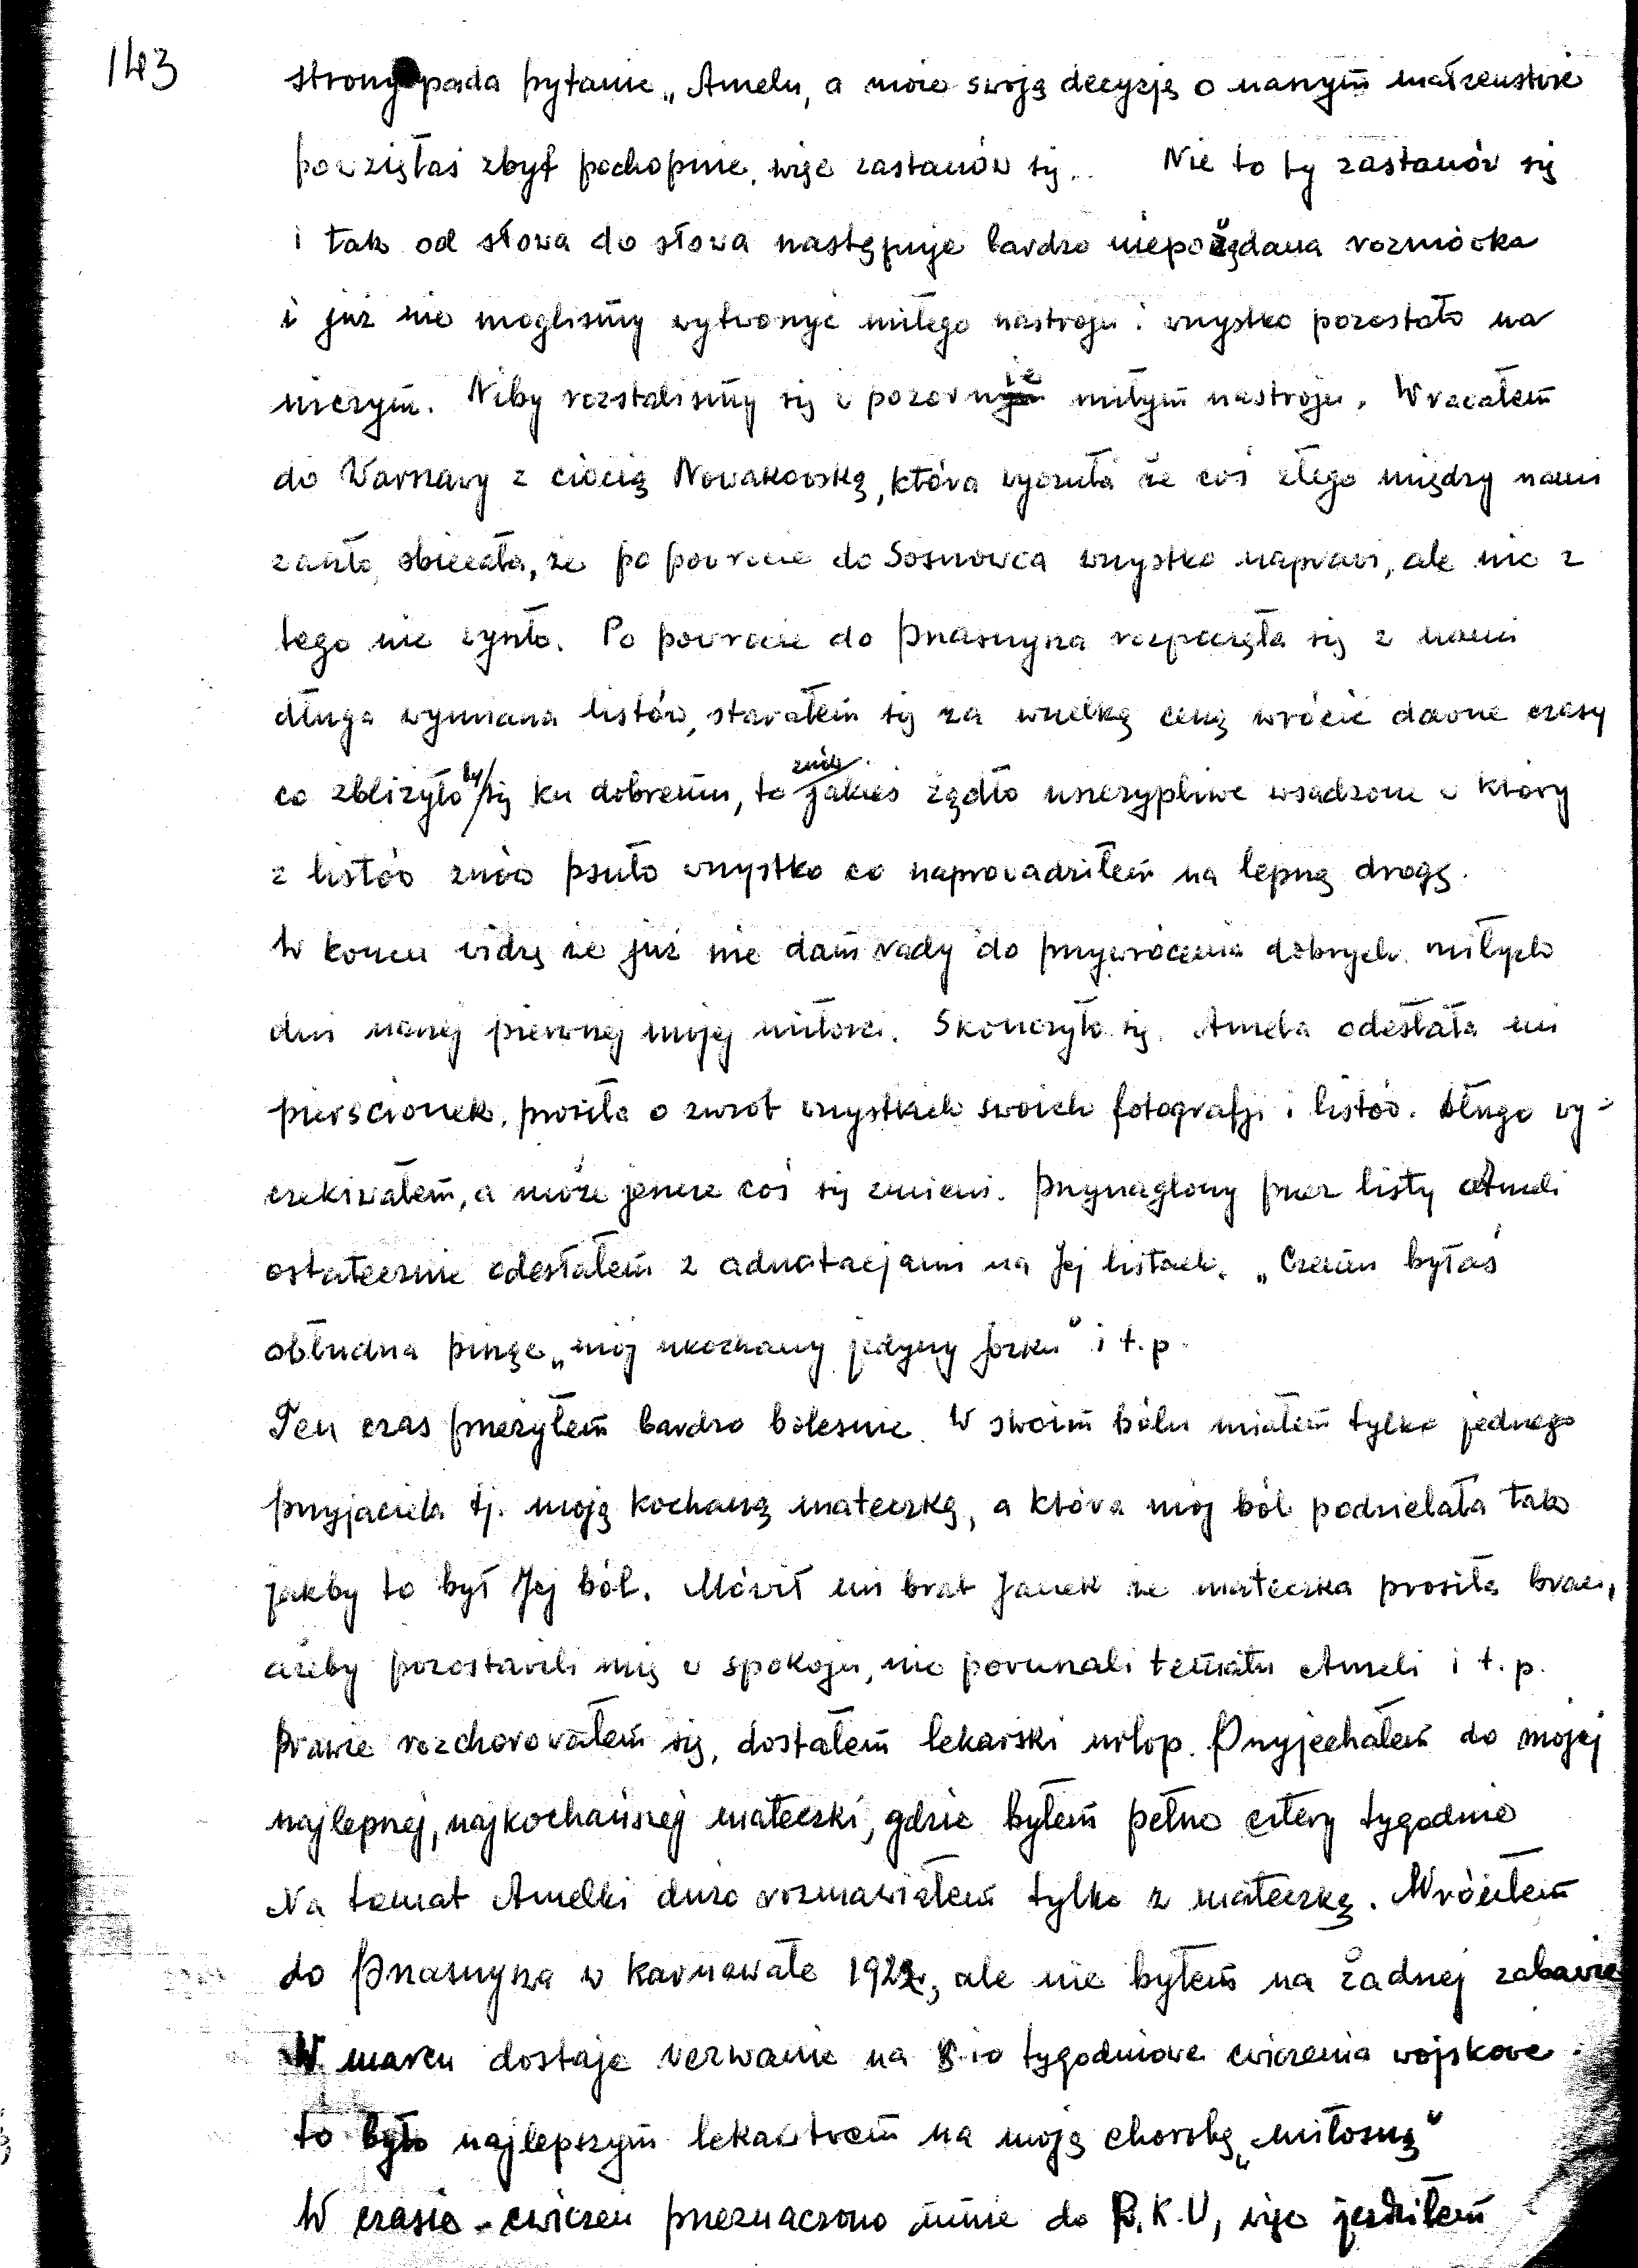 143
strony pada pytanie „Amelu, a może swoją decyzję o naszym małżeństwie
powzięłaś zbyt pochopnie, więc zastanów się.. Nie to ty zastanów się
i tak od słowa do słowa następuje bardzo niepożądana rozmówka
i już nie mogliśmy wytworzyć miłego nastroju i wszystko pozostało na
niczym. Niby rozstaliśmy się w pozornie miłym nastroju. Wracałem
do Warszawy z ciocią Nowakowską, która wyczuła że coś złego między nami
zaszło, obiecała, że po powrocie do Sosnowca wszystko naprawi, ale nic z
tego nie wyszło. Po powrocie do Przasnysza rozpoczęła się z nami
długa wymiana listów, starałem się za wszelką cenę wrócić dawne czasy
co zbliżyło by się ku dobremu, to znów jakieś żądło uszczypliwe wsadzone w który
z listów znów psuło wszystko co naprowadziłem na lepszą drogę.
W końcu widzę że już nie dam rady do przywrócenia dobrych miłych
dni naszej pierwszej mojej miłości. Skończyło się. Amela odesłała mi
pierścionek, prosiła o zwrot wszystkich swoich fotografji i listów. Długo wy-
czekiwałem, a może jeszcze coś się zmieni. Przynaglony przez listy Ameli
ostatecznie odesłałem z adnotacjami na Jej listach. „Czemu byłaś
obłudna pisząc „mój ukochany jedyny Józku" i t.p.
Ten czas przeżyłem bardzo boleśnie. W swoim bólu miałem tylko jednego
przyjaciela tj. moją kochaną mateczkę, a która mój ból podzielała tak
jakby to był Jej ból. Mówił mi brat Janek że mateczka prosiła braci,
ażeby pozostawili mię w spokoju, nie poruszali tematu Ameli i t.p.
Prawie rozchorowałem się, dostałem lekarski urlop. Przyjechałem do mojej
najlepszej, najkochańszej mateczki, gdzie byłem pełne cztery tygodnie
Na temat Amelki dużo rozmawiałem tylko z mateczką. Wróciłem
do Przasnysza w karnawale 1922r, ale nie byłem na żadnej zabawie
W marcu dostaję wezwanie na 8-io tygodniowe ćwiczenia wojskowe.
to było najlepszym lekarstwem na moją chorobę „miłosną"
W czasie ćwiczeń przeznaczono mnie do P.K.U, więc jeździłem